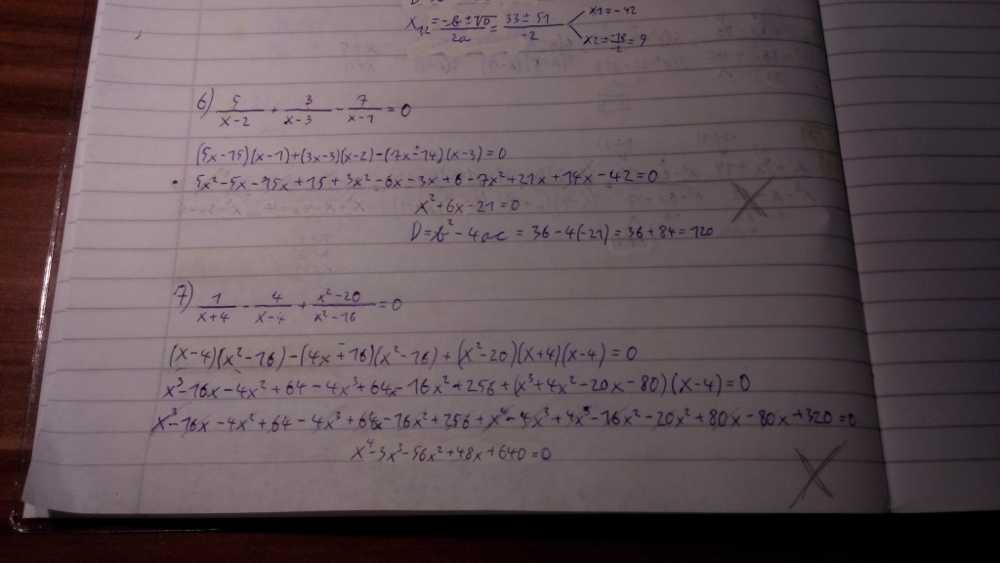 x₁₂ = (-b ± √D)/2a = (33 ± 51)/-2 < x1 = -42
x2 = -18/-2 = 9
6) 5/(x-2) + 3/(x-3) - 7/(x-1) = 0
(5x-15)(x-1)+(3x-3)(x-2)-(7x-14)(x-3)=0
5x²-5x-15x+15+3x²-6x-3x+6-7x²+21x+14x-42=0
x²+6x-21=0
D=b²-4ac = 36-4(-21) = 36+84 = 120
7) 1/(x+4) - 4/(x-4) + (x²-20)/(x²-16) = 0
(x-4)(x²-16)-(4x+16)(x²-16)+(x²-20)(x+4)(x-4)=0
x³-16x-4x²+64-4x³+64x-16x²+256+(x³+4x²-20x-80)(x-4)=0
x³-16x-4x²+64-4x³+64x-16x²+256+x⁴-4x³+4x³-16x²-20x²+80x-80x+320=0
x⁴-3x³-56x²+48x+640=0